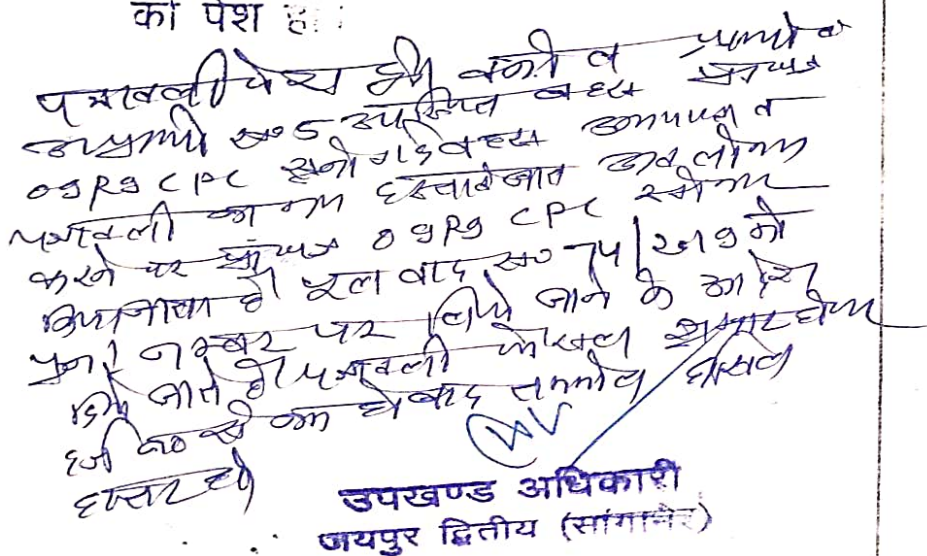 को पेश ह
पत्रावली पेश हुई वकील प्रार्थी व
अप्रार्थी सं० 5 उपस्थित बहस प्रा०पत्र
O9R9 CPC सुनी गई बहस
पत्रावली का मय दस्तावेजात अवलोकन
करने पर प्रा०पत्र O9R9 CPC स्वीकार
किया जाता है मूल वाद सं०
पुनः नम्बर पर लिये जाने के आदेश
दिये जाते है पत्रावली फैसल शुमार होकर
दर्ज नं० से कम हो बाद तकमील दाखिल
दफ्तर हो
उपखण्ड अधिकारी
जयपुर द्वितीय (सांगानेर)